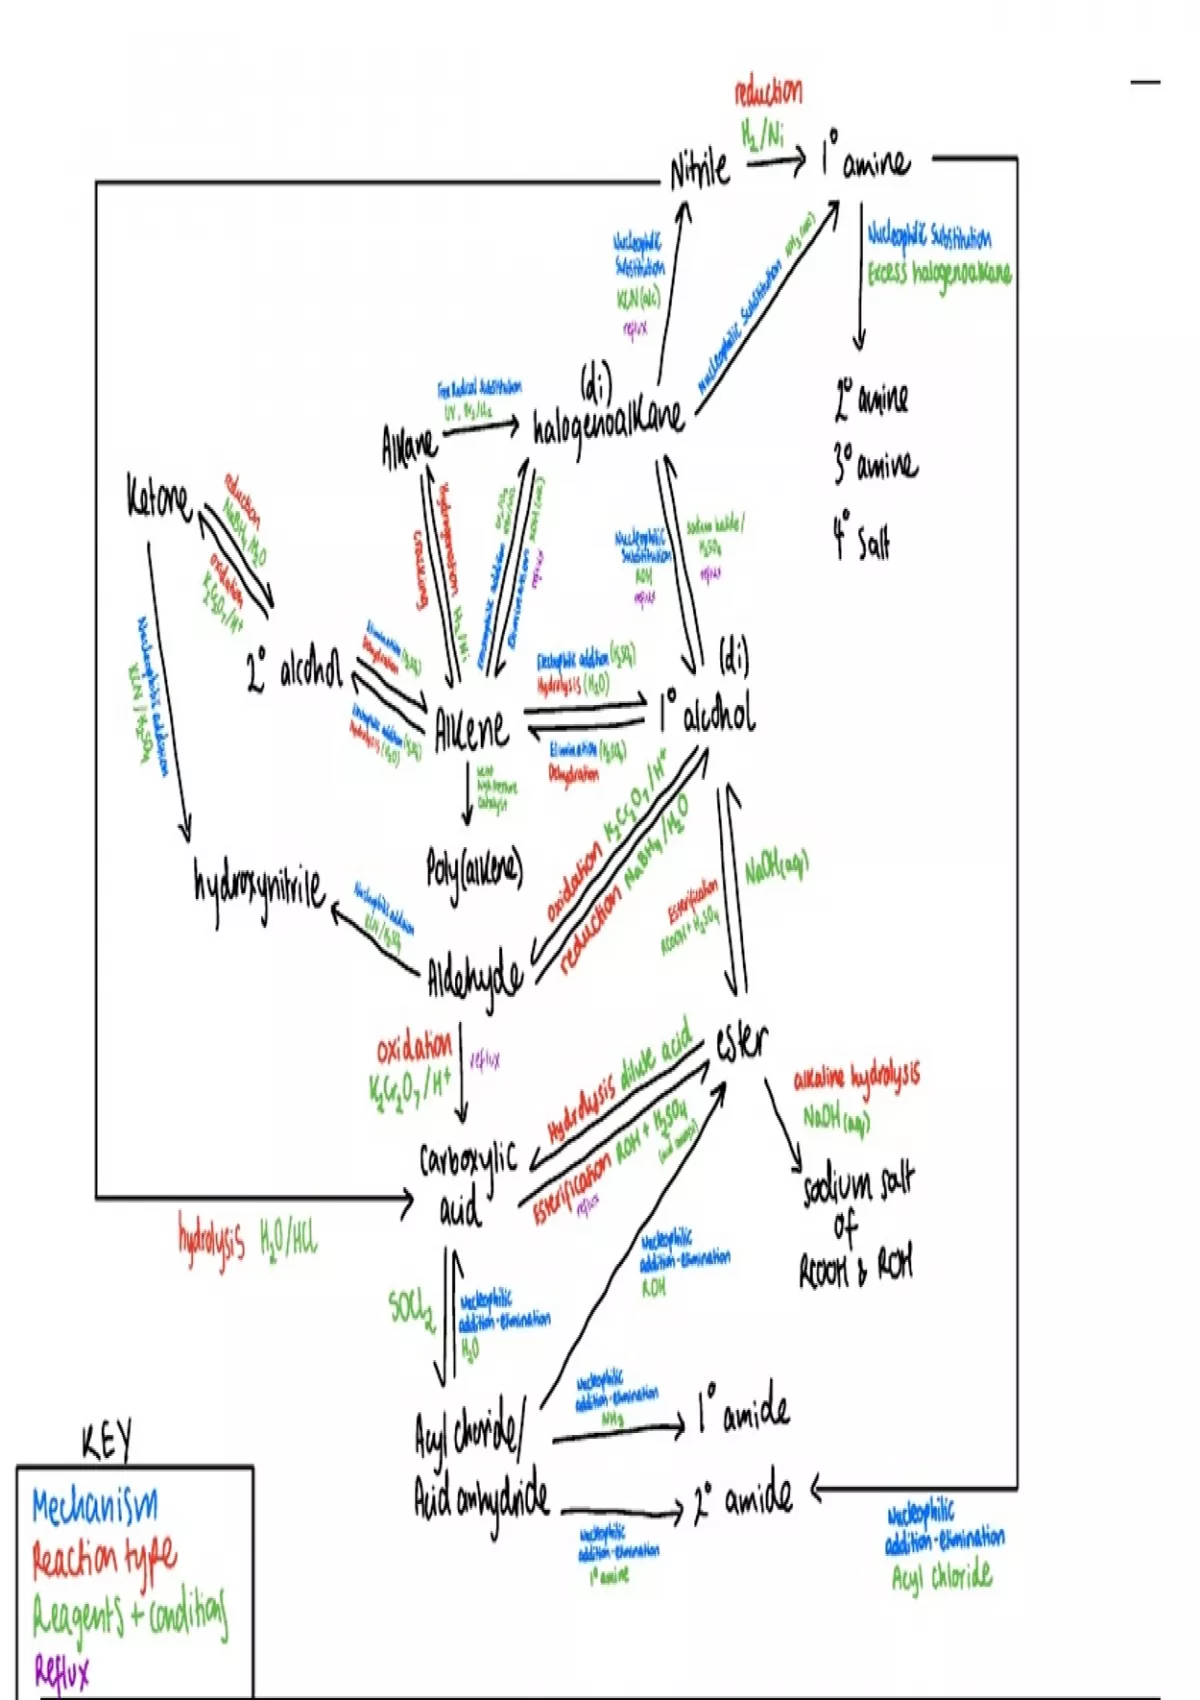 reduction
H₂/Ni
Nitrile
1° amine
Nucleophilic
Substitution
KCN (alc)
reflux
Nucleophilic Substitution NH₃ (alc)
Nucleophilic Substitution
Excess halogenoalkane
2° amine
3° amine
4° salt
Free Radical Substitution
UV, Br₂/Cl₂
Alkane
(di)
halogenoalkane
Ketone
reduction
NaBH₄/H₂O
oxidation
K₂Cr₂O₇/H⁺
Hydrogenation H₂/Ni
cracking
Electrophilic addition
Elimination
reflux
Nucleophilic
Substitution
reflux
sodium halide/
H₂SO₄
reflux
Nucleophilic addition
KCN/H₂SO₄
2° alcohol
Elimination (H₂SO₄)
Dehydration
Electrophilic addition (H₂SO₄)
Hydrolysis (H₂O)
Alkene
Electrophilic addition (H₂SO₄)
Hydrolysis (H₂O)
Elimination (H₂SO₄)
Dehydration
(di)
1° alcohol
high pressure
catalyst
Poly(alkene)
oxidation K₂Cr₂O₇/H⁺
reduction NaBH₄/H₂O
hydroxynitrile
Nucleophilic addition
KCN/H₂SO₄
Aldehyde
Esterification
RCOOH + H₂SO₄
NaOH(aq)
oxidation
K₂Cr₂O₇/H⁺
reflux
ester
Hydrolysis dilute acid
Esterification ROH + H₂SO₄
reflux
alkaline hydrolysis
NaOH(aq)
sodium salt
of
RCOOH & ROH
carboxylic
acid
hydrolysis H₂O/HCl
SOCl₂
Nucleophilic
addition-elimination
H₂O
Nucleophilic
addition-elimination
ROH
Acyl chloride/
Acid anhydride
Nucleophilic
addition-elimination
NH₃
1° amide
2° amide
Nucleophilic
addition-elimination
1° amine
Nucleophilic
addition-elimination
Acyl chloride
KEY
Mechanism
Reaction type
Reagents + conditions
Reflux